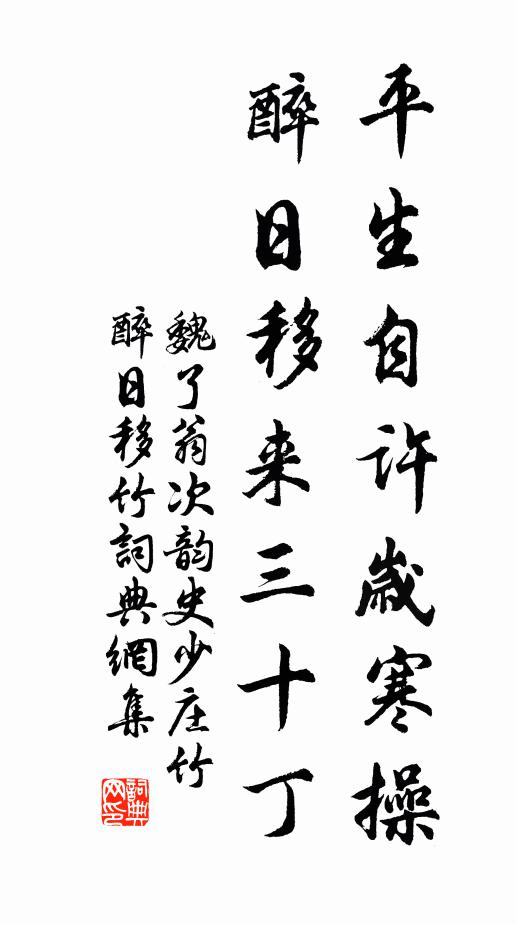 平生自许歲寒操
醉日移来三十丁
魏了翁次韵史少庄竹
醉日移竹詞典網集
詞典网印